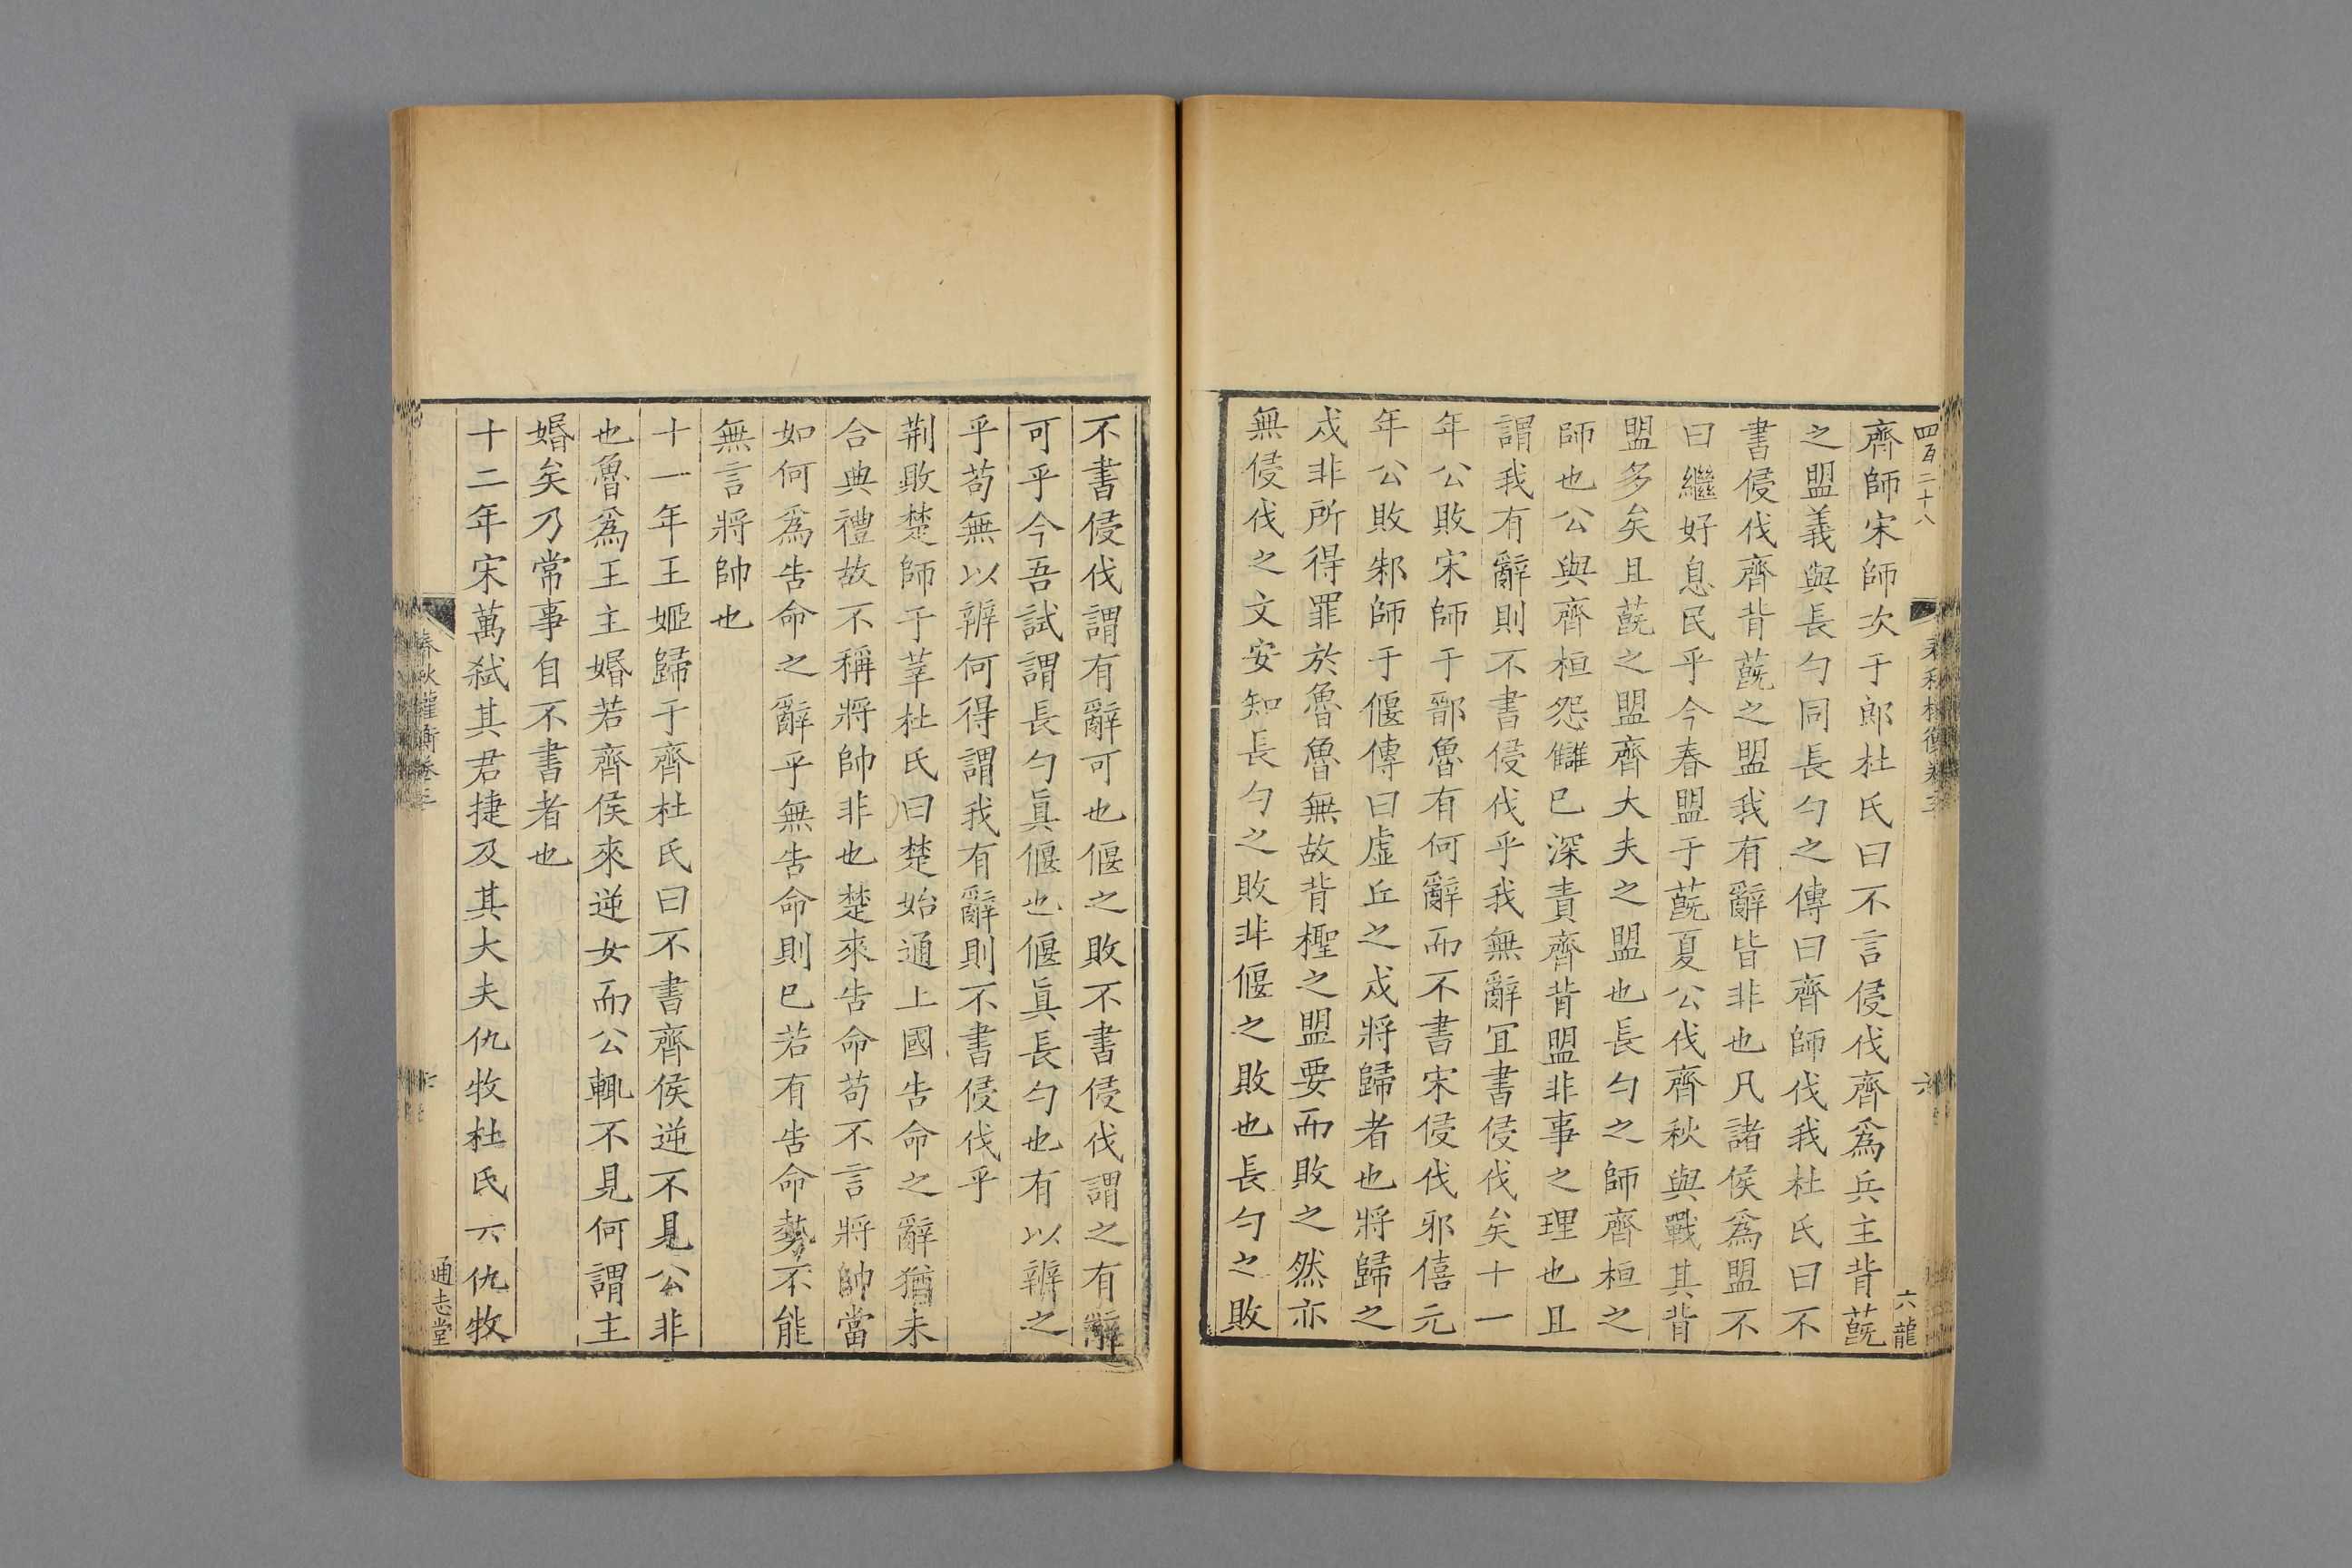 四百二十八
春秋權衡卷三
六
六龍
齊師宋師次于郎杜氏曰不言侵伐齊爲兵主背蔇
之盟義與長勺同長勺之傳曰齊師伐我杜氏曰不
書侵伐齊背蔇之盟我有辭皆非也凡諸侯爲盟不
曰繼好息民乎今春盟于蔇夏公伐齊秋與戰其背
盟多矣且蔇之盟齊大夫之盟也長勺之師齊桓之
師也公與齊桓怨讎已深責齊背盟非事之理也且
謂我有辭則不書侵伐乎我無辭冝書侵伐矣十一
年公敗宋師于鄑魯有何辭而不書宋侵伐邪僖元
年公敗邾師于偃傳曰虛丘之戍將歸者也將歸之
戍非所得罪於魯魯無故背檉之盟要而敗之然亦
無侵伐之文安知長勺之敗非偃之敗也長勺之敗
不書侵伐謂有辭可也偃之敗不書侵伐謂之有辭
可乎今吾試謂長勺眞偃也偃眞長勺也有以辨之
乎苟無以辨何得謂我有辭則不書侵伐乎
荆敗楚師于莘杜氏曰楚始通上國告命之辭猶未
合典禮故不稱將帥非也楚來告命苟不言將帥當
如何爲告命之辭乎無告命則已若有告命勢不能
無言將帥也
十一年王姬歸于齊杜氏曰不書齊侯逆不見公非
也魯爲王主婚若齊侯來逆女而公輒不見何謂主
婚矣乃常事自不書者也
十二年宋萬弑其君捷及其大夫仇牧杜氏云仇牧
春秋權衡卷三
七
通志堂